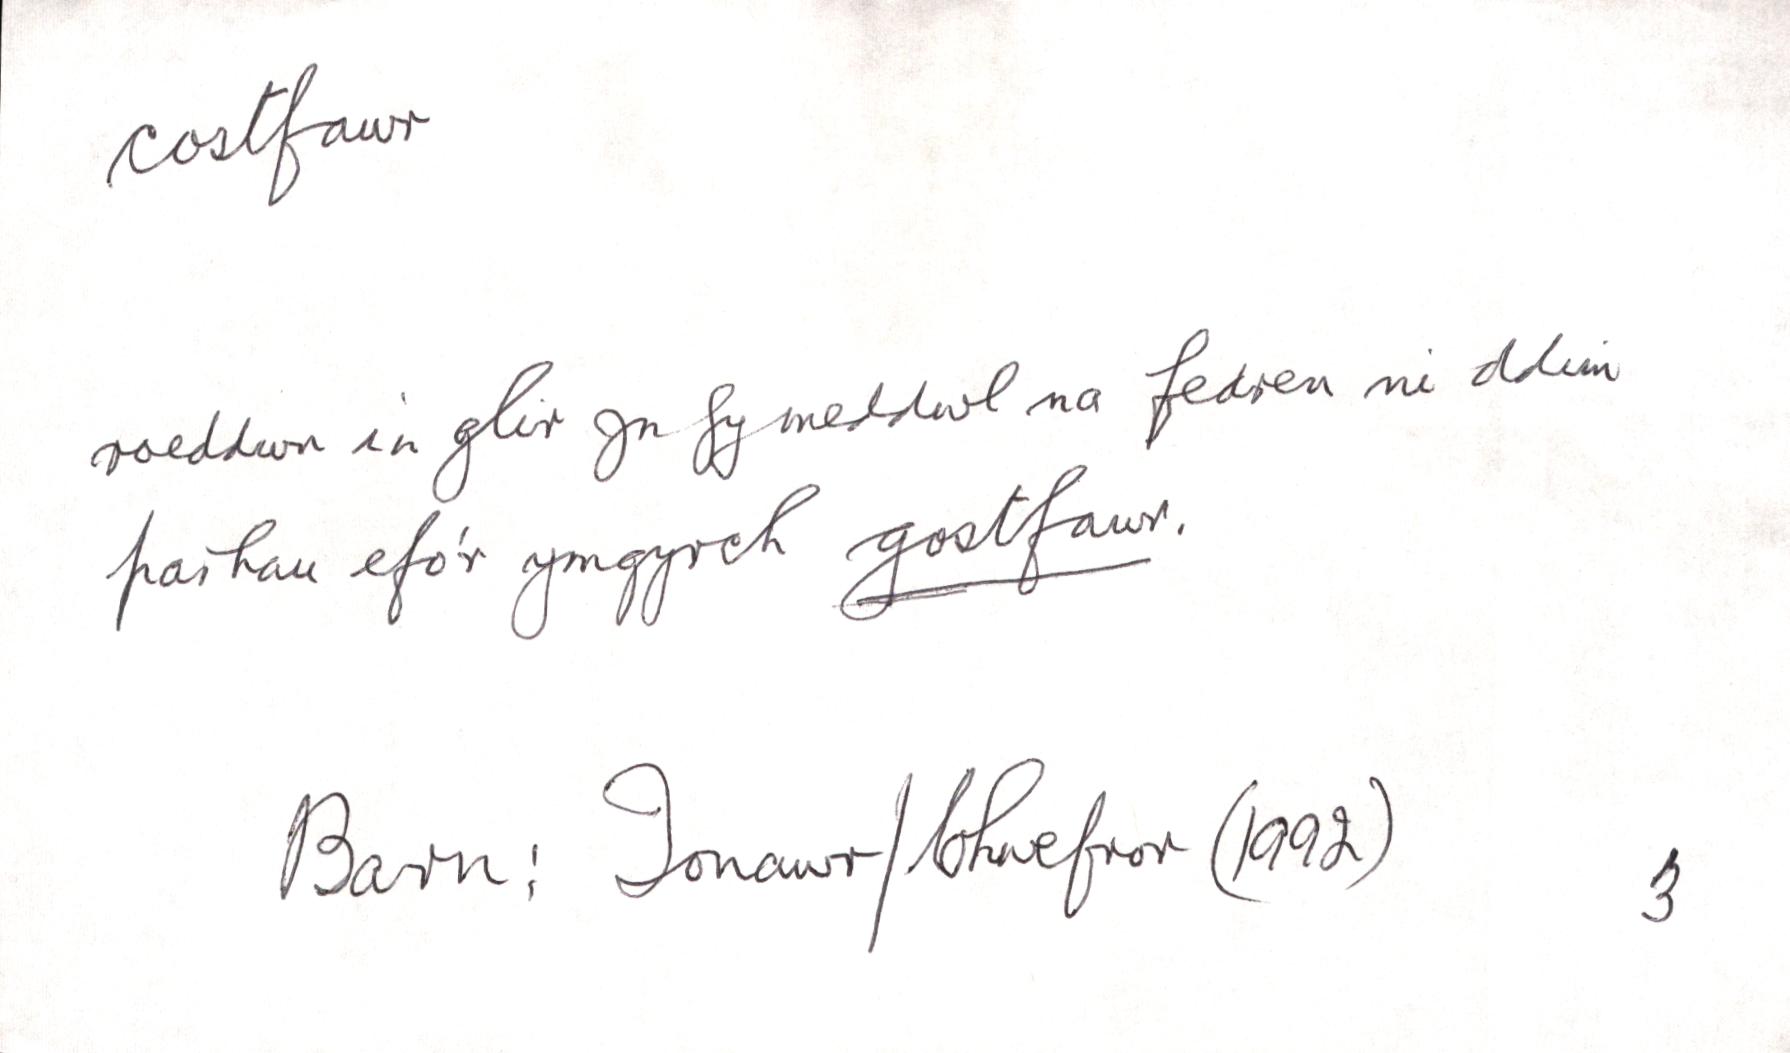 costfawr
roeddwn in glir yn fy meddwl na fedren ni ddim
parhau efo'r ymgyrch gostfawr.
Barn: Ionawr/Chwefror (1992)
3